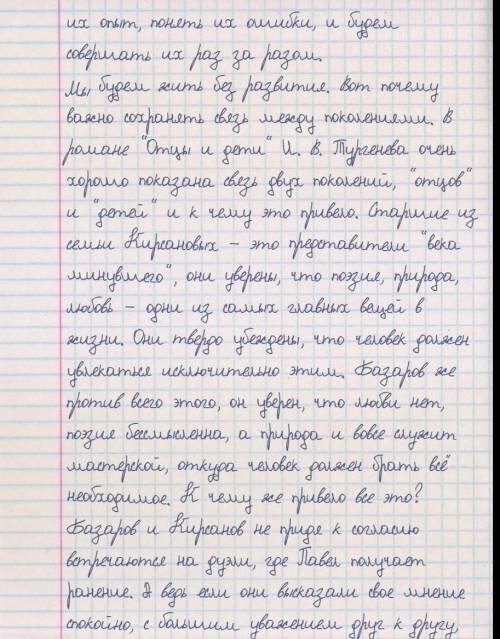 их опыт, понять их ошибки, и будем
совершать их раз за разом.
Мы будем жить без развития. Вот почему
важно сохранять связь между поколениями. В
романе "Отцы и дети" И. В. Тургенева очень
хорошо показана связь двух поколений, "отцов"
и "детей" и к чему это привело. Старшие из
семьи Кирсановых – это представители "века
минувшего", они уверены, что поэзия, природа,
любовь – одни из самых главных вещей в
жизни. Они твердо убеждены, что человек должен
увлекаться исключительно этим. Базаров же
против всего этого, он уверен, что любви нет,
поэзия бессмысленна, а природа и вовсе служит
мастерской, откуда человек должен брать всё
необходимое. К чему же привело все это?
Базаров и Кирсанов не придя к согласию
встречаются на дуэли, где Павел получает
ранение. А ведь если они высказали свое мнение
спокойно, с большим уважением друг к другу,